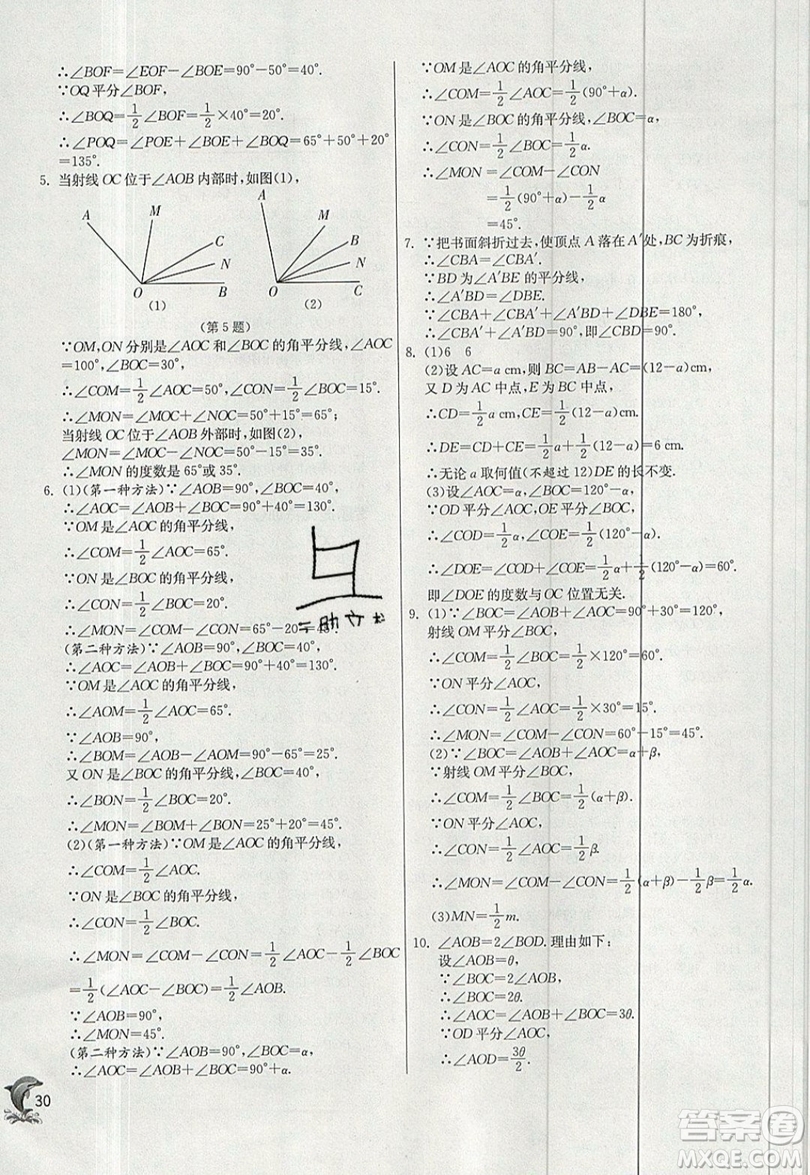 ∴∠BOF=∠EOF-∠BOE=90°-50°=40°.
∵OQ平分∠BOF,
∴∠BOQ=1/2∠BOF=1/2×40°=20°.
∴∠POQ=∠POE+∠BOE+∠BOQ=65°+50°+20°
=135°.
5. 当射线OC位于∠AOB内部时,如图(1),
A M C N O B
(1)
A M B N O C
(2)
(第5题)
∵OM,ON分别是∠AOC和∠BOC的角平分线,∠AOC
=100°,∠BOC=30°,
∴∠COM=1/2∠AOC=50°,∠CON=1/2∠BOC=15°.
∴∠MON=∠MOC+∠NOC=50°+15°=65°;
当射线OC位于∠AOB外部时,如图(2),
∠MON=∠MOC-∠NOC=50°-15°=35°.
∴∠MON的度数是65°或35°.
6. (1)(第一种方法)∵∠AOB=90°,∠BOC=40°,
∴∠AOC=∠AOB+∠BOC=90°+40°=130°.
∵OM是∠AOC的角平分线,
∴∠COM=1/2∠AOC=65°.
∵ON是∠BOC的角平分线,
∴∠CON=1/2∠BOC=20°.
∴∠MON=∠COM-∠CON=65°-20°=45°.
(第二种方法)∵∠AOB=90°,∠BOC=40°,
∴∠AOC=∠AOB+∠BOC=90°+40°=130°.
∵OM是∠AOC的角平分线,
∴∠AOM=1/2∠AOC=65°.
∵∠AOB=90°,
∴∠BOM=∠AOB-∠AOM=90°-65°=25°.
又ON是∠BOC的角平分线,∠BOC=40°,
∴∠BON=1/2∠BOC=20°.
∴∠MON=∠BOM+∠BON=25°+20°=45°.
(2)(第一种方法)∵OM是∠AOC的角平分线,
∴∠COM=1/2∠AOC.
∵ON是∠BOC的角平分线,
∴∠CON=1/2∠BOC.
∴∠MON=∠COM-∠CON=1/2∠AOC-1/2∠BOC
=1/2(∠AOC-∠BOC)=1/2∠AOB.
∵∠AOB=90°,
∴∠MON=45°.
(第二种方法)∵∠AOB=90°,∠BOC=α,
∴∠AOC=∠AOB+∠BOC=90°+α.
30
∵OM是∠AOC的角平分线,
∴∠COM=1/2∠AOC=1/2(90°+α).
∵ON是∠BOC的角平分线,∠BOC=α,
∴∠CON=1/2∠BOC=1/2α,
∴∠MON=∠COM-∠CON
=1/2(90°+α)-1/2α
=45°.
7. ∵把书面斜折过去,使顶点A落在A′处,BC为折痕,
∴∠CBA=∠CBA′.
∵BD为∠A′BE的平分线,
∴∠A′BD=∠DBE.
∵∠CBA+∠CBA′+∠A′BD+∠DBE=180°,
∴∠CBA′+∠A′BD=90°,即∠CBD=90°.
8. (1)6 6
(2)设AC=a cm,则BC=AB-AC=(12-a)cm,
又D为AC中点,E为BC中点,
∴CD=1/2a cm,CE=1/2(12-a)cm.
∴DE=CD+CE=1/2a+1/2(12-a)=6 cm.
∴无论a取何值(不超过12)DE的长不变.
(3)设∠AOC=α,∠BOC=120°-α.
∵OD平分∠AOC,OE平分∠BOC,
∴∠COD=1/2α,∠COE=1/2(120°-α).
∴∠DOE=∠COD+∠COE=1/2α+1/2(120°-α)=60°.
即∠DOE的度数与OC位置无关.
9. (1)∵∠BOC=∠AOB+∠AOC=90°+30°=120°,
射线OM平分∠BOC,
∴∠COM=1/2∠BOC=1/2×120°=60°.
∵ON平分∠AOC,
∴∠CON=1/2∠AOC=1/2×30°=15°.
∴∠MON=∠COM-∠CON=60°-15°=45°.
(2)∵∠BOC=∠AOB+∠AOC=α+β,
∵射线OM平分∠BOC,
∴∠COM=1/2∠BOC=1/2(α+β).
∵ON平分∠AOC,
∴∠CON=1/2∠AOC=1/2β.
∴∠MON=∠COM-∠CON=1/2(α+β)-1/2β=1/2α.
(3)MN=1/2m.
10. ∠AOB=2∠BOD.理由如下:
设∠AOB=θ,
∵∠BOC=2∠AOB,
∴∠BOC=2θ.
∴∠AOC=∠AOB+∠BOC=3θ.
∵OD平分∠AOC,
∴∠AOD=3θ/2.
答案圈
MXQE.COM